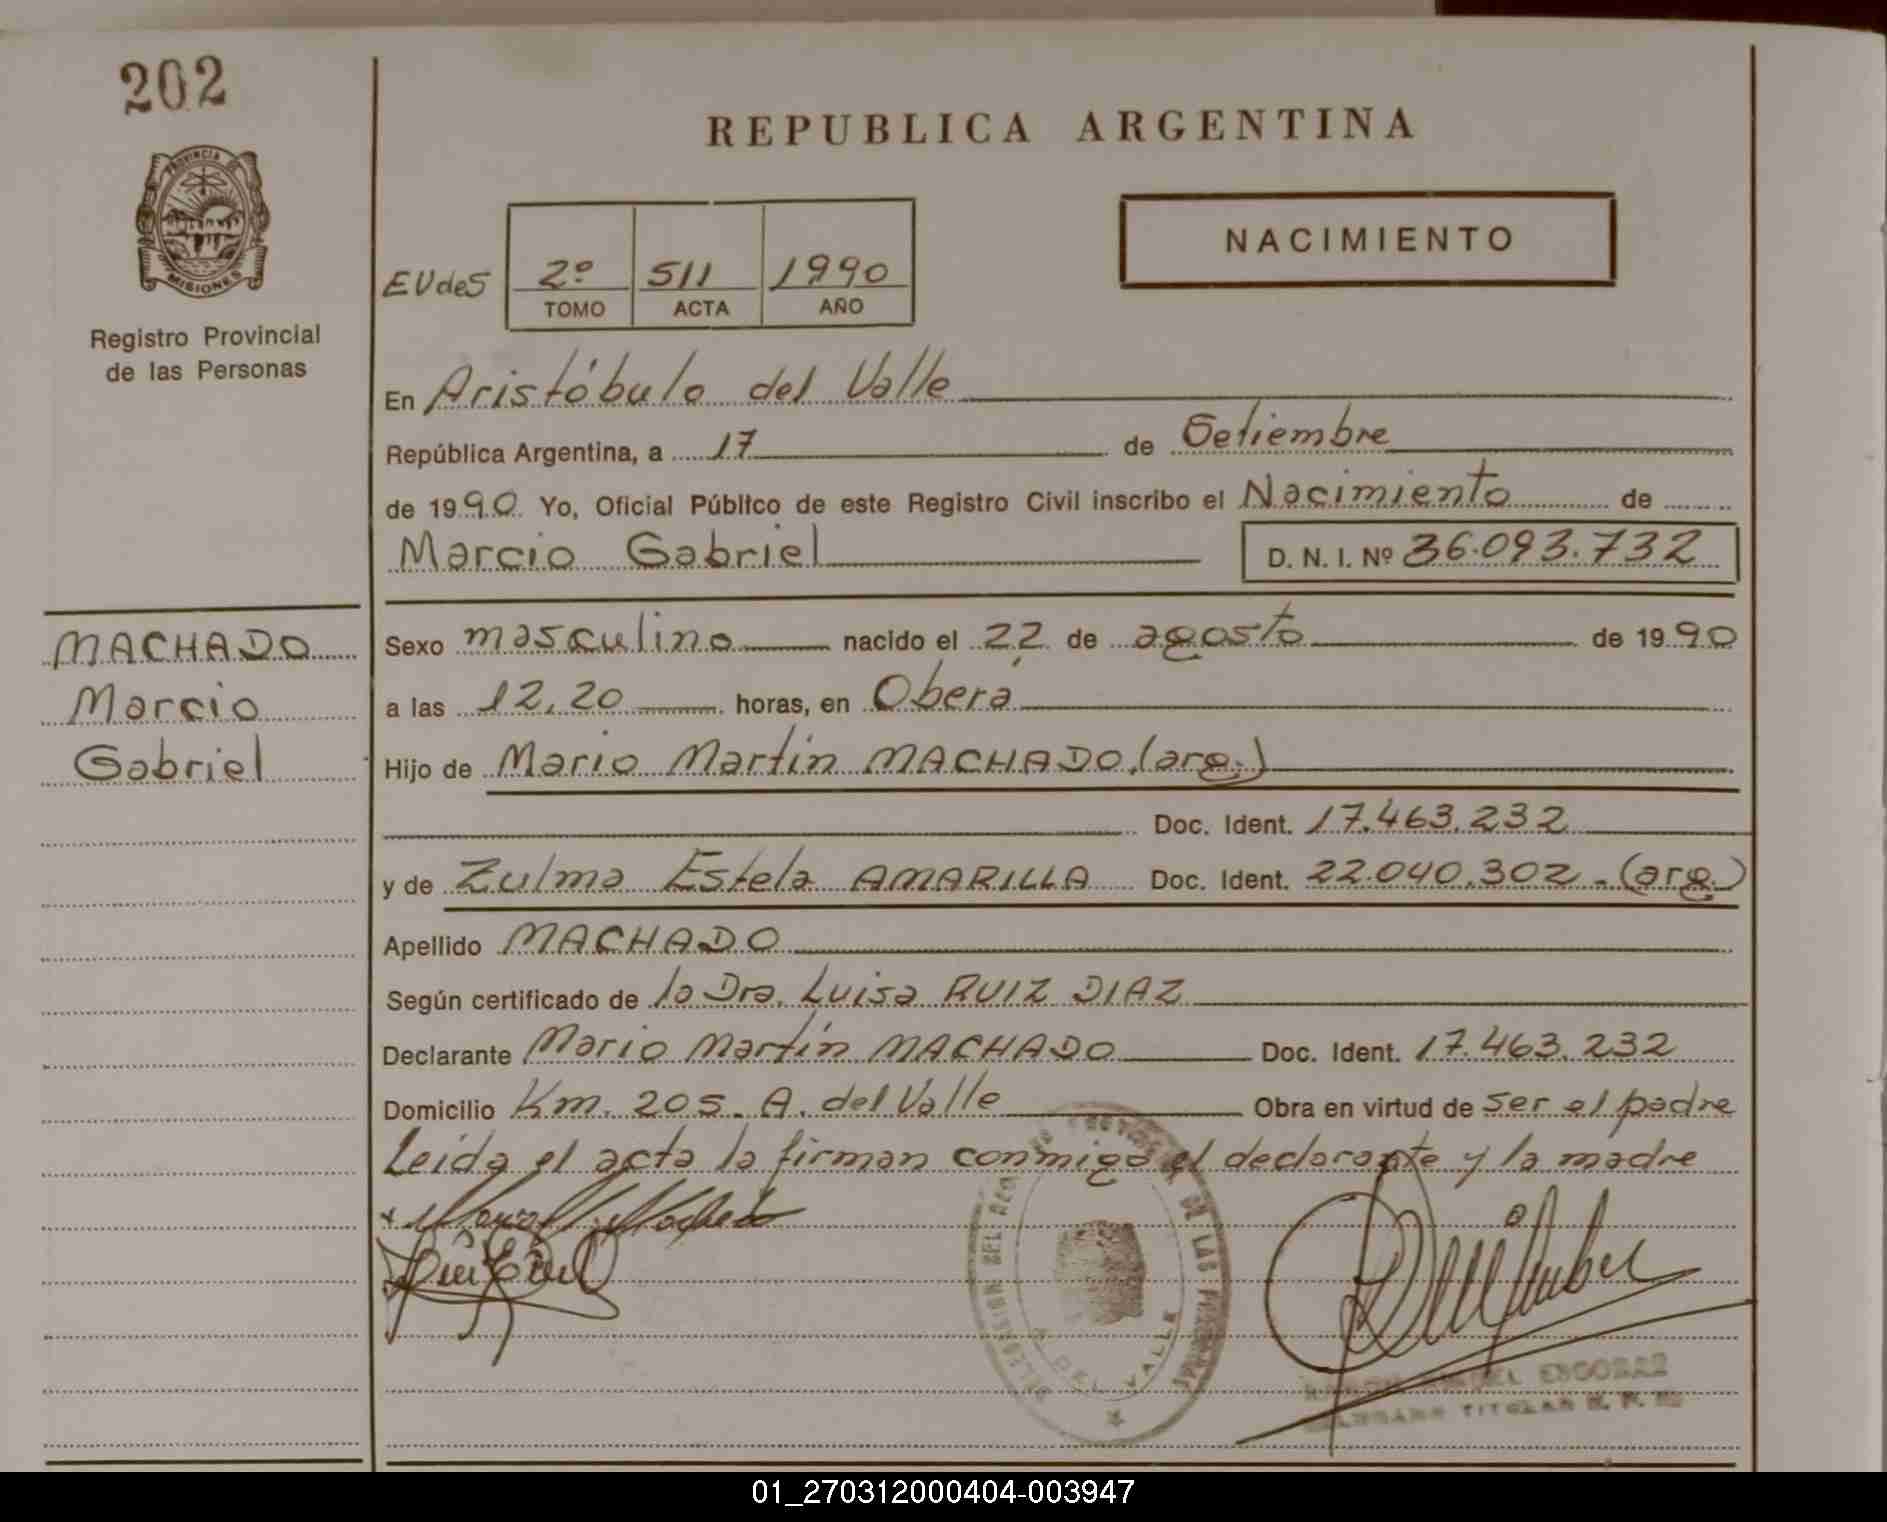 202
PROVINCIA
MISIONES
Registro Provincial
de las Personas
REPUBLICA ARGENTINA
NACIMIENTO
EUdeS
2º 511 1990
TOMO ACTA AÑO
En Aristóbulo del Valle
República Argentina, a 17 de Setiembre
de 1990 Yo, Oficial Público de este Registro Civil inscribo el Nacimiento de
Marcio Gabriel D. N. I. Nº 36.093.732
MACHADO
Marcio
Gabriel
Sexo masculino nacido el 22 de agosto de 1990
a las 12,20 horas, en Oberá
Hijo de Mario Martín MACHADO (arg.)
Doc. Ident. 17.463.232
y de Zulma Estela AMARILLA Doc. Ident. 22.040.302 - (arg.)
Apellido MACHADO
Según certificado de la Dra. Luisa RUIZ DIAZ
Declarante Mario Martín MACHADO Doc. Ident. 17.463.232
Domicilio Km. 205. A. del Valle Obra en virtud de ser el padre
Leida el acta la firman conmigo el declarante y la madre
DEL DE LAS
A. DEL VALLE
ESCOBAR
TITULAR
01_270312000404-003947